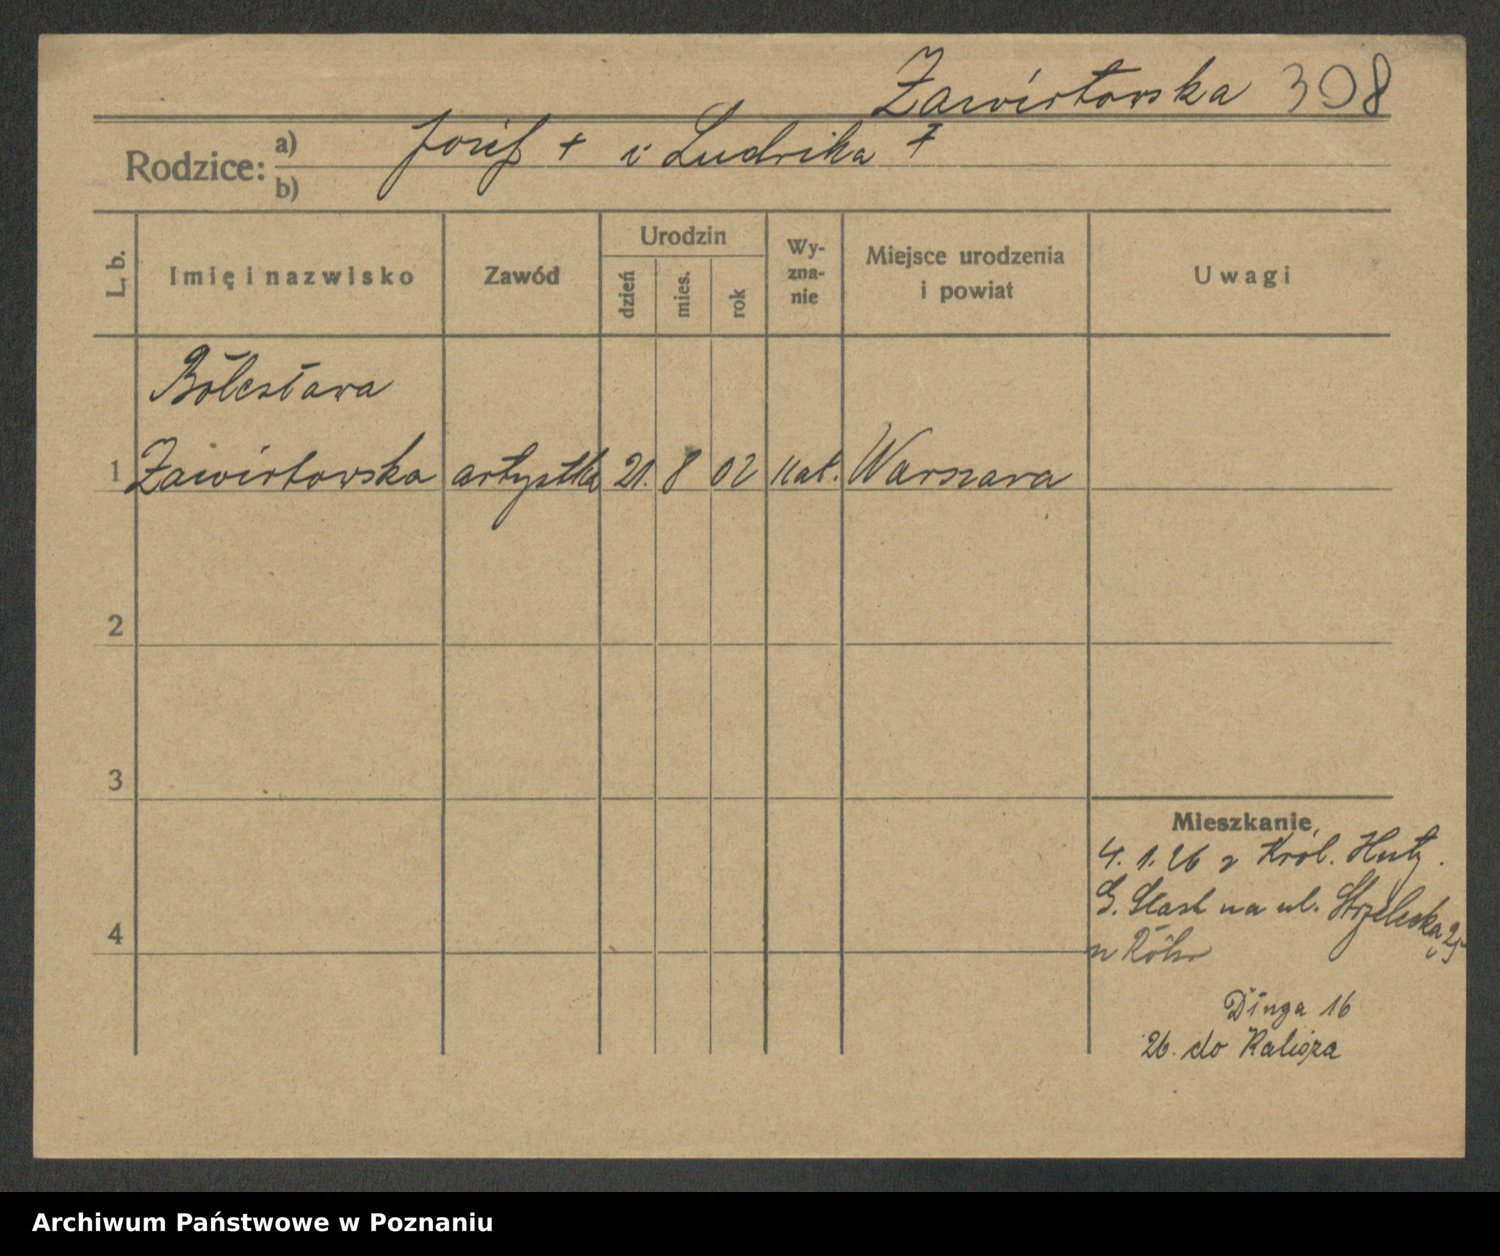 Zawirtowska 308
Rodzice: a) Józef + i Ludwika +
b)
L. b. Imię i nazwisko Zawód Urodzin dzień mies. rok Wyzna-nie Miejsce urodzenia i powiat Uwagi
Bolesława
1 Zawirtowska artystka 21. 8 02 kat. Warszawa
2
3
Mieszkanie
4. 1. 26 z Król. Huty.
G. Śląsk na ul. Strzelecka 25
4
Długa 16
26. do Kalisza
Archiwum Państwowe w Poznaniu